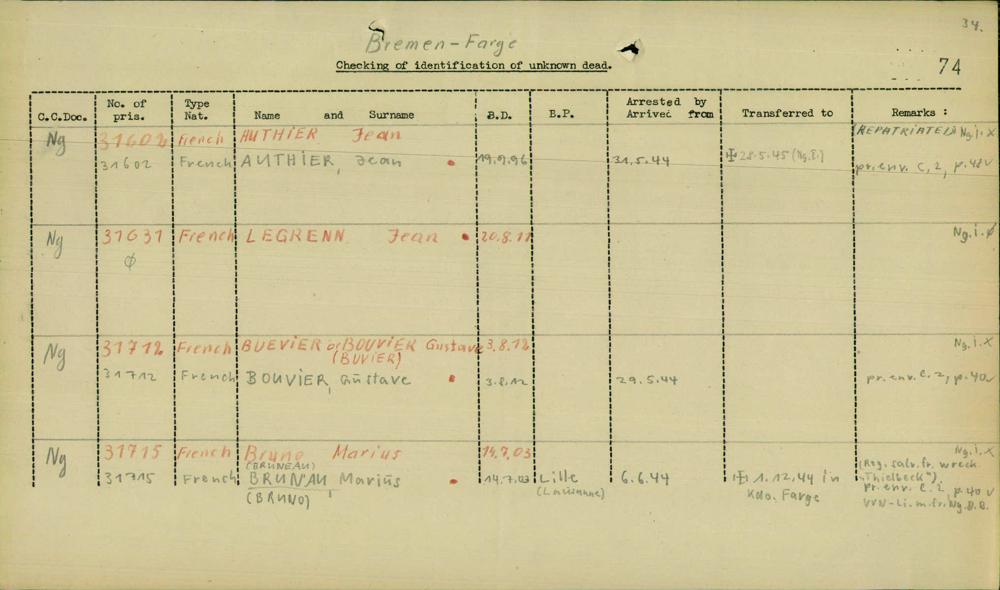 34.
Bremen-Farge
Checking of identification of unknown dead.
74
C.C.Doc. No. of pris. Type Nat. Name and Surname B.D. B.P. Arrested by Arrived from Transferred to Remarks :
Ng 31602 French AUTHIER Jean (REPATRIATED) Ng.i.X
31602 French AUTHIER, Jean 19.9.96 31.5.44 ✠ 28.5.45 (Ng.B.) pr.env. C, 2, p.48v
Ng 31631 French LEGRENN Jean 20.8.11 Ng.i.Ø
Ø
Ng 31712 French BUEVIER or BOUVIER Gustave 3.8.12 Ng.i.X
(BUVIER)
31712 French BOUVIER, Gustave 3.8.12 29.5.44 pr.env. C.2, p.40v
Ng 31715 French Bruno Marius 14.7.03 Ng.i.X
(BRUNEAU) (Reg. salv. fr. wreck
31715 French BRUNAU, Marius 14.7.03 Lille 6.6.44 ✠ 1.12.44 in "Thielbeck")
(BRUNO) Kdo. Farge pr.env. C.2, p.40v
VVN-Li.m.fr.Ng.B.B.